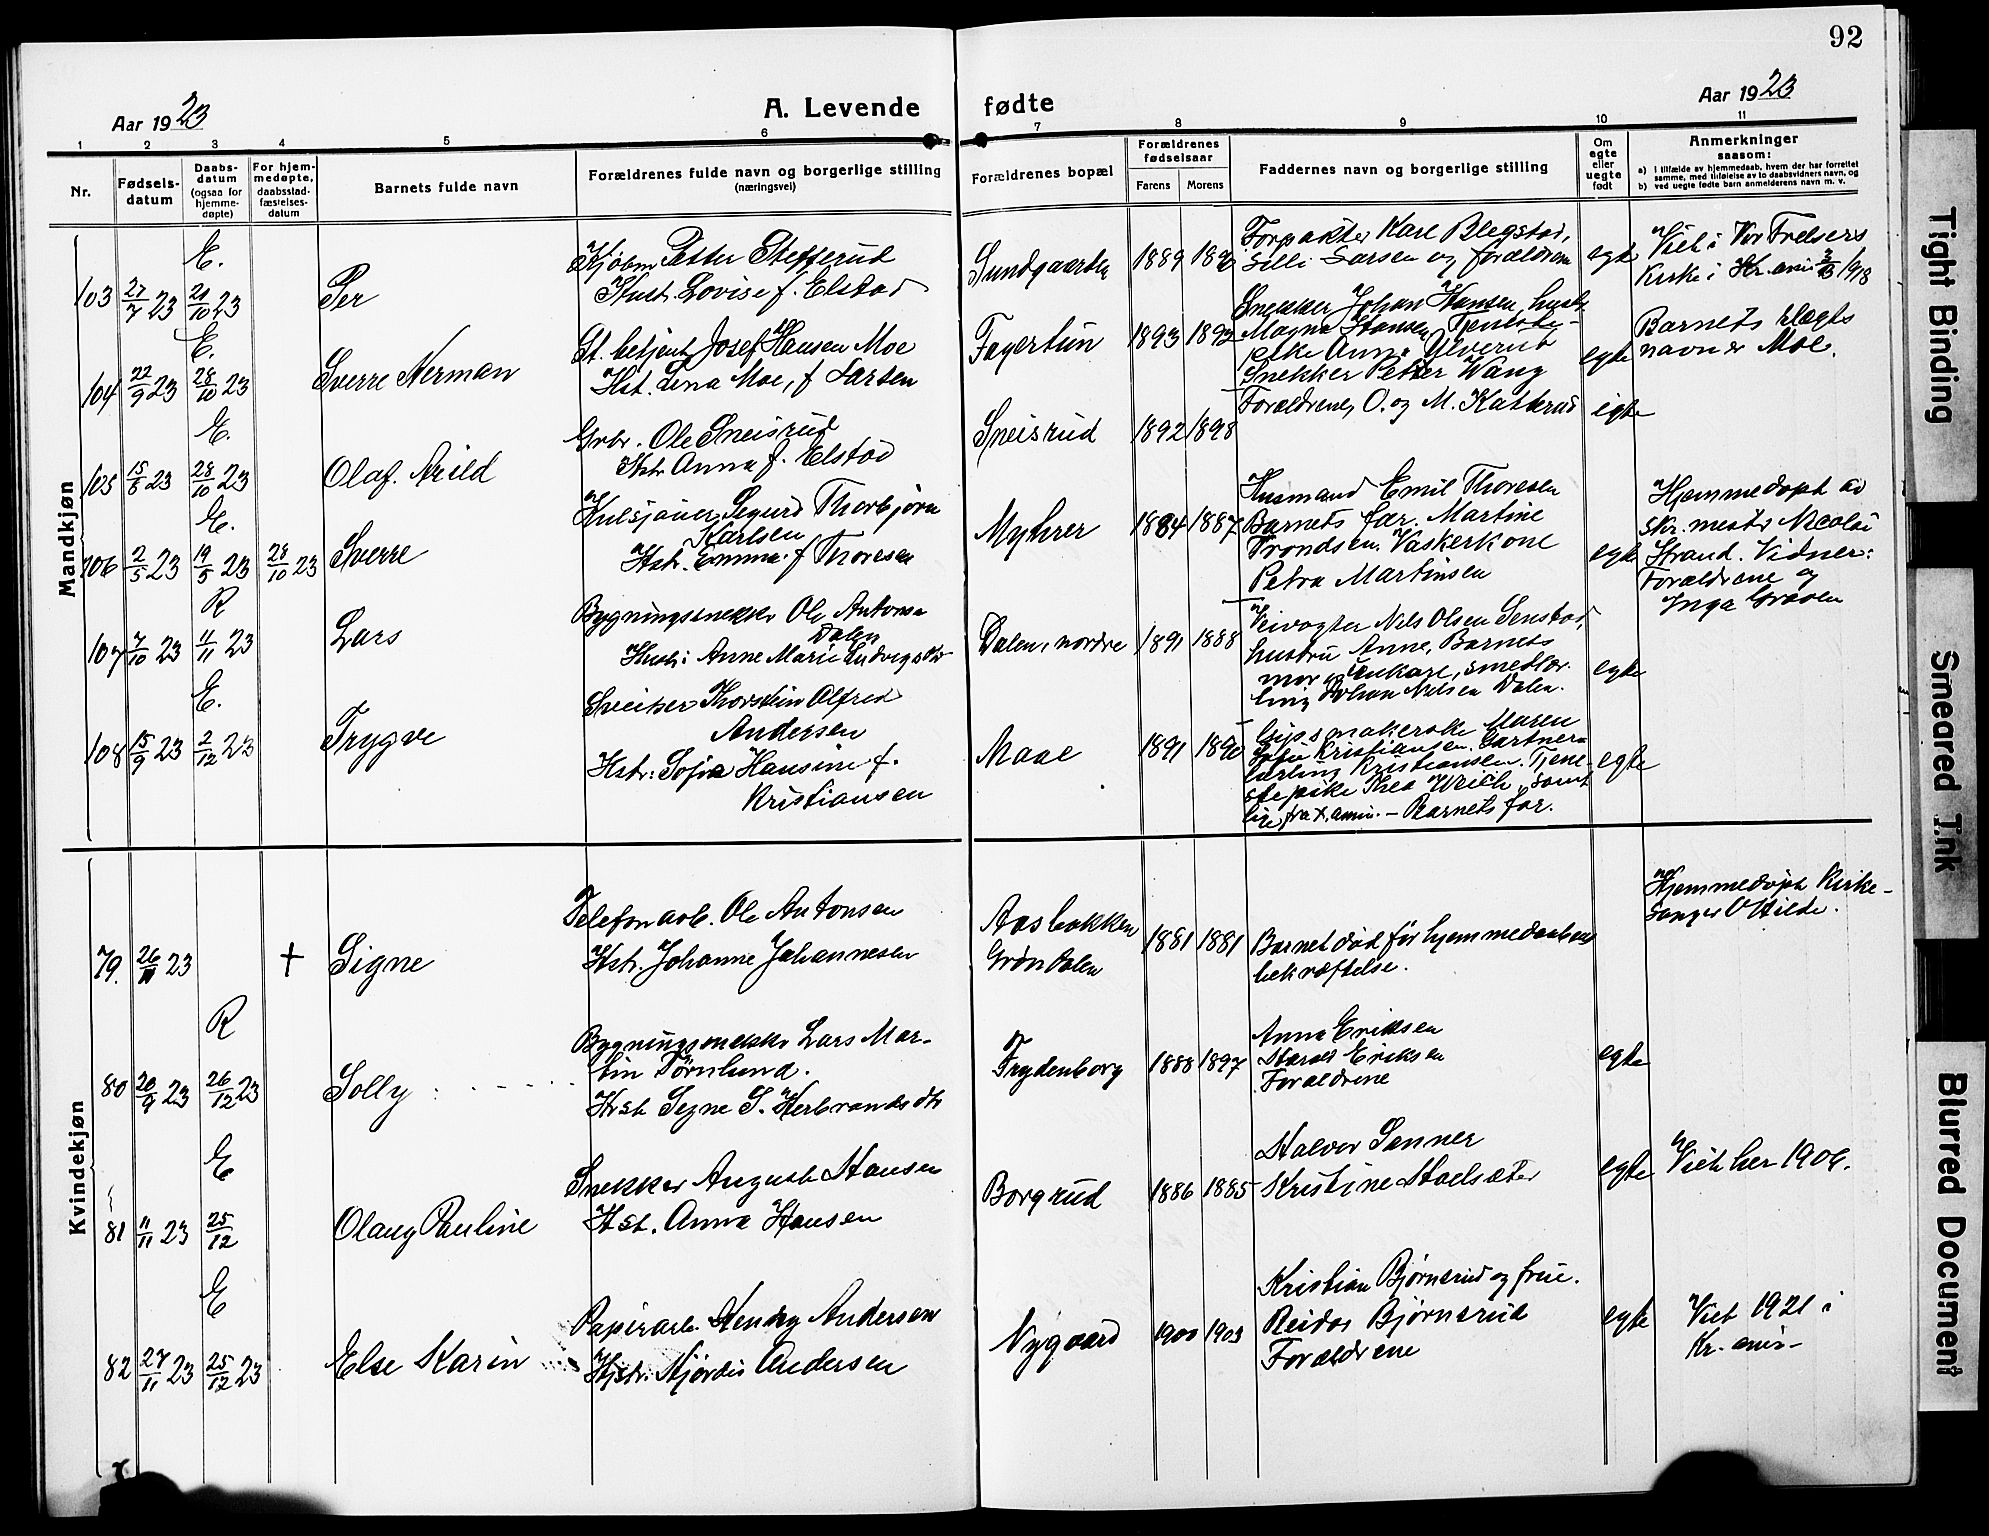 92
Aar 1923
A. Levende fødte
Aar 1923
1 2 3 4 5 6 7 8 9 10 11
Nr.
Fødsels-
datum
Daabs-
datum
(ogsaa for
hjemme-
døpte)
For hjem-
medøpte,
daabsstad-
fæstelses-
datum
Barnets fulde navn
Forældrenes fulde navn og borgerlige stilling
(næringsvei)
Forældrenes bopæl
Forældrenes
fødselsaar
Farens Morens
Faddernes navn og borgerlige stilling
Om
egte
eller
uegte
født
Anmerkninger
saasom:
a) i tilfælde av hjemmedaab, hvem der har forrettet
samme, med tilføielse av to daabsvidners navn, og
b) ved uegte fødte barn anmelderens navn m. v.
Mandkjøn
E.
103 27/7 23 21/10 23 Per
Kjøbm Petter Stefferud
Hustr. Lovise f. Elstad
Sundgaarden 1889 1890
Forpakter Karl Blegstad,
Silli Larsen og forældrene
egte
Viet i Vor Frelsers
Kirke i Kr.ania 1918
E.
104 22/9 23 28/10 23 Sverre Herman
St. betjent Josef Hansen Moe
Hst. Lena Moe, f Larsen
Fagertun 1893 1892
Snekker Johan Hansen, hustr.
Magna Hansen, Tjeneste-
pike Anna Ulverud
Snekker Petter Wang
egte
Barnets slegts
navn er Moe.
E.
105 15/8 23 28/10 23 Olaf Arild
Grbr. Ole Sneisrud
Hstr Anna f. Elstad
Sneisrud 1892 1898
Forældrene, O. og M. Katterud
egte
E.
106 2/5 23 19/5 23 28/10 23 Sverre
Kulsjauer Sigurd Thorbjørn
Karlsen
Hstr. Emma f Thoresen
Myhrer 1884 1887
Husmand Emil Thoresen
Barnets far. Martine
Trondsen. Vaskerkone
Petra Martinsen
egte
Hjemmedøpt av
skr.mester Nicolai
Strand. Vidner:
Forældrene og
Inga Graven
R
107 7/10 23 11/11 23 Lars
Bygningssnekker Ole Antonsen
Dalen
Hustr: Anne Marie Ludvigsdtr
Dalen, nordre 1891 1888
Veivogter Nils Olsen Senstad,
hustru Anne, Barnets
mor, Enkare, smedlær-
ling Johan Nilsen Dalen.
egte
E.
108 15/9 23 2/12 23 Trygve
Sveitser Thorstein Alfred
Andersen
Hstr: Sofie Hansine f.
Kristiansen
Maae 1891 1890
Gipsmakerske Maren
Sofie Kristiansen. Gartner-
lærling Kristiansen. Tjene-
stepike Thea Weich, samt
lige fra Kr.ania. – Barnets far.
egte
Kvindekjøn
79. 26/11 23 + Signe
Telefonarb. Ole Antonsen
Hstr. Johanne Johannesen
Aasbakken
Grøndalen
1881 1881
Barnet død før hjemmedaabens
bekræftelse.
Hjemmedøpt Kirke-
sanger O Hilde.
R
80 20/9 23 26/12 23 Solly
Bygningssnekker Lars Mar-
tin Tørnlund.
Hst Signe S. Herbrandsdtr
Frydenborg 1888 1897
Anna Eriksen
Harald Eriksen
Forældrene
egte
E
81 11/11 23 25/12 Olaug Pauline
Snekker August Hansen
Hst. Anna Hansen
Borgrud 1886 1885
Halvor Sanner
Kristine Stadsæter
egte
Viet her 1906.
E
82 27/11 23 25/12 23 Else Karin
Papirarb. Henry Andersen
Hstr: Hjørdis Andersen
Nygaard 1900 1903
Kristian Bjørnerud og frue.
Reidar Bjørnerud
Forældrene
egte
Viet 1921 i
Kr.ania
Tight Binding
Smeared Ink
Blurred Document